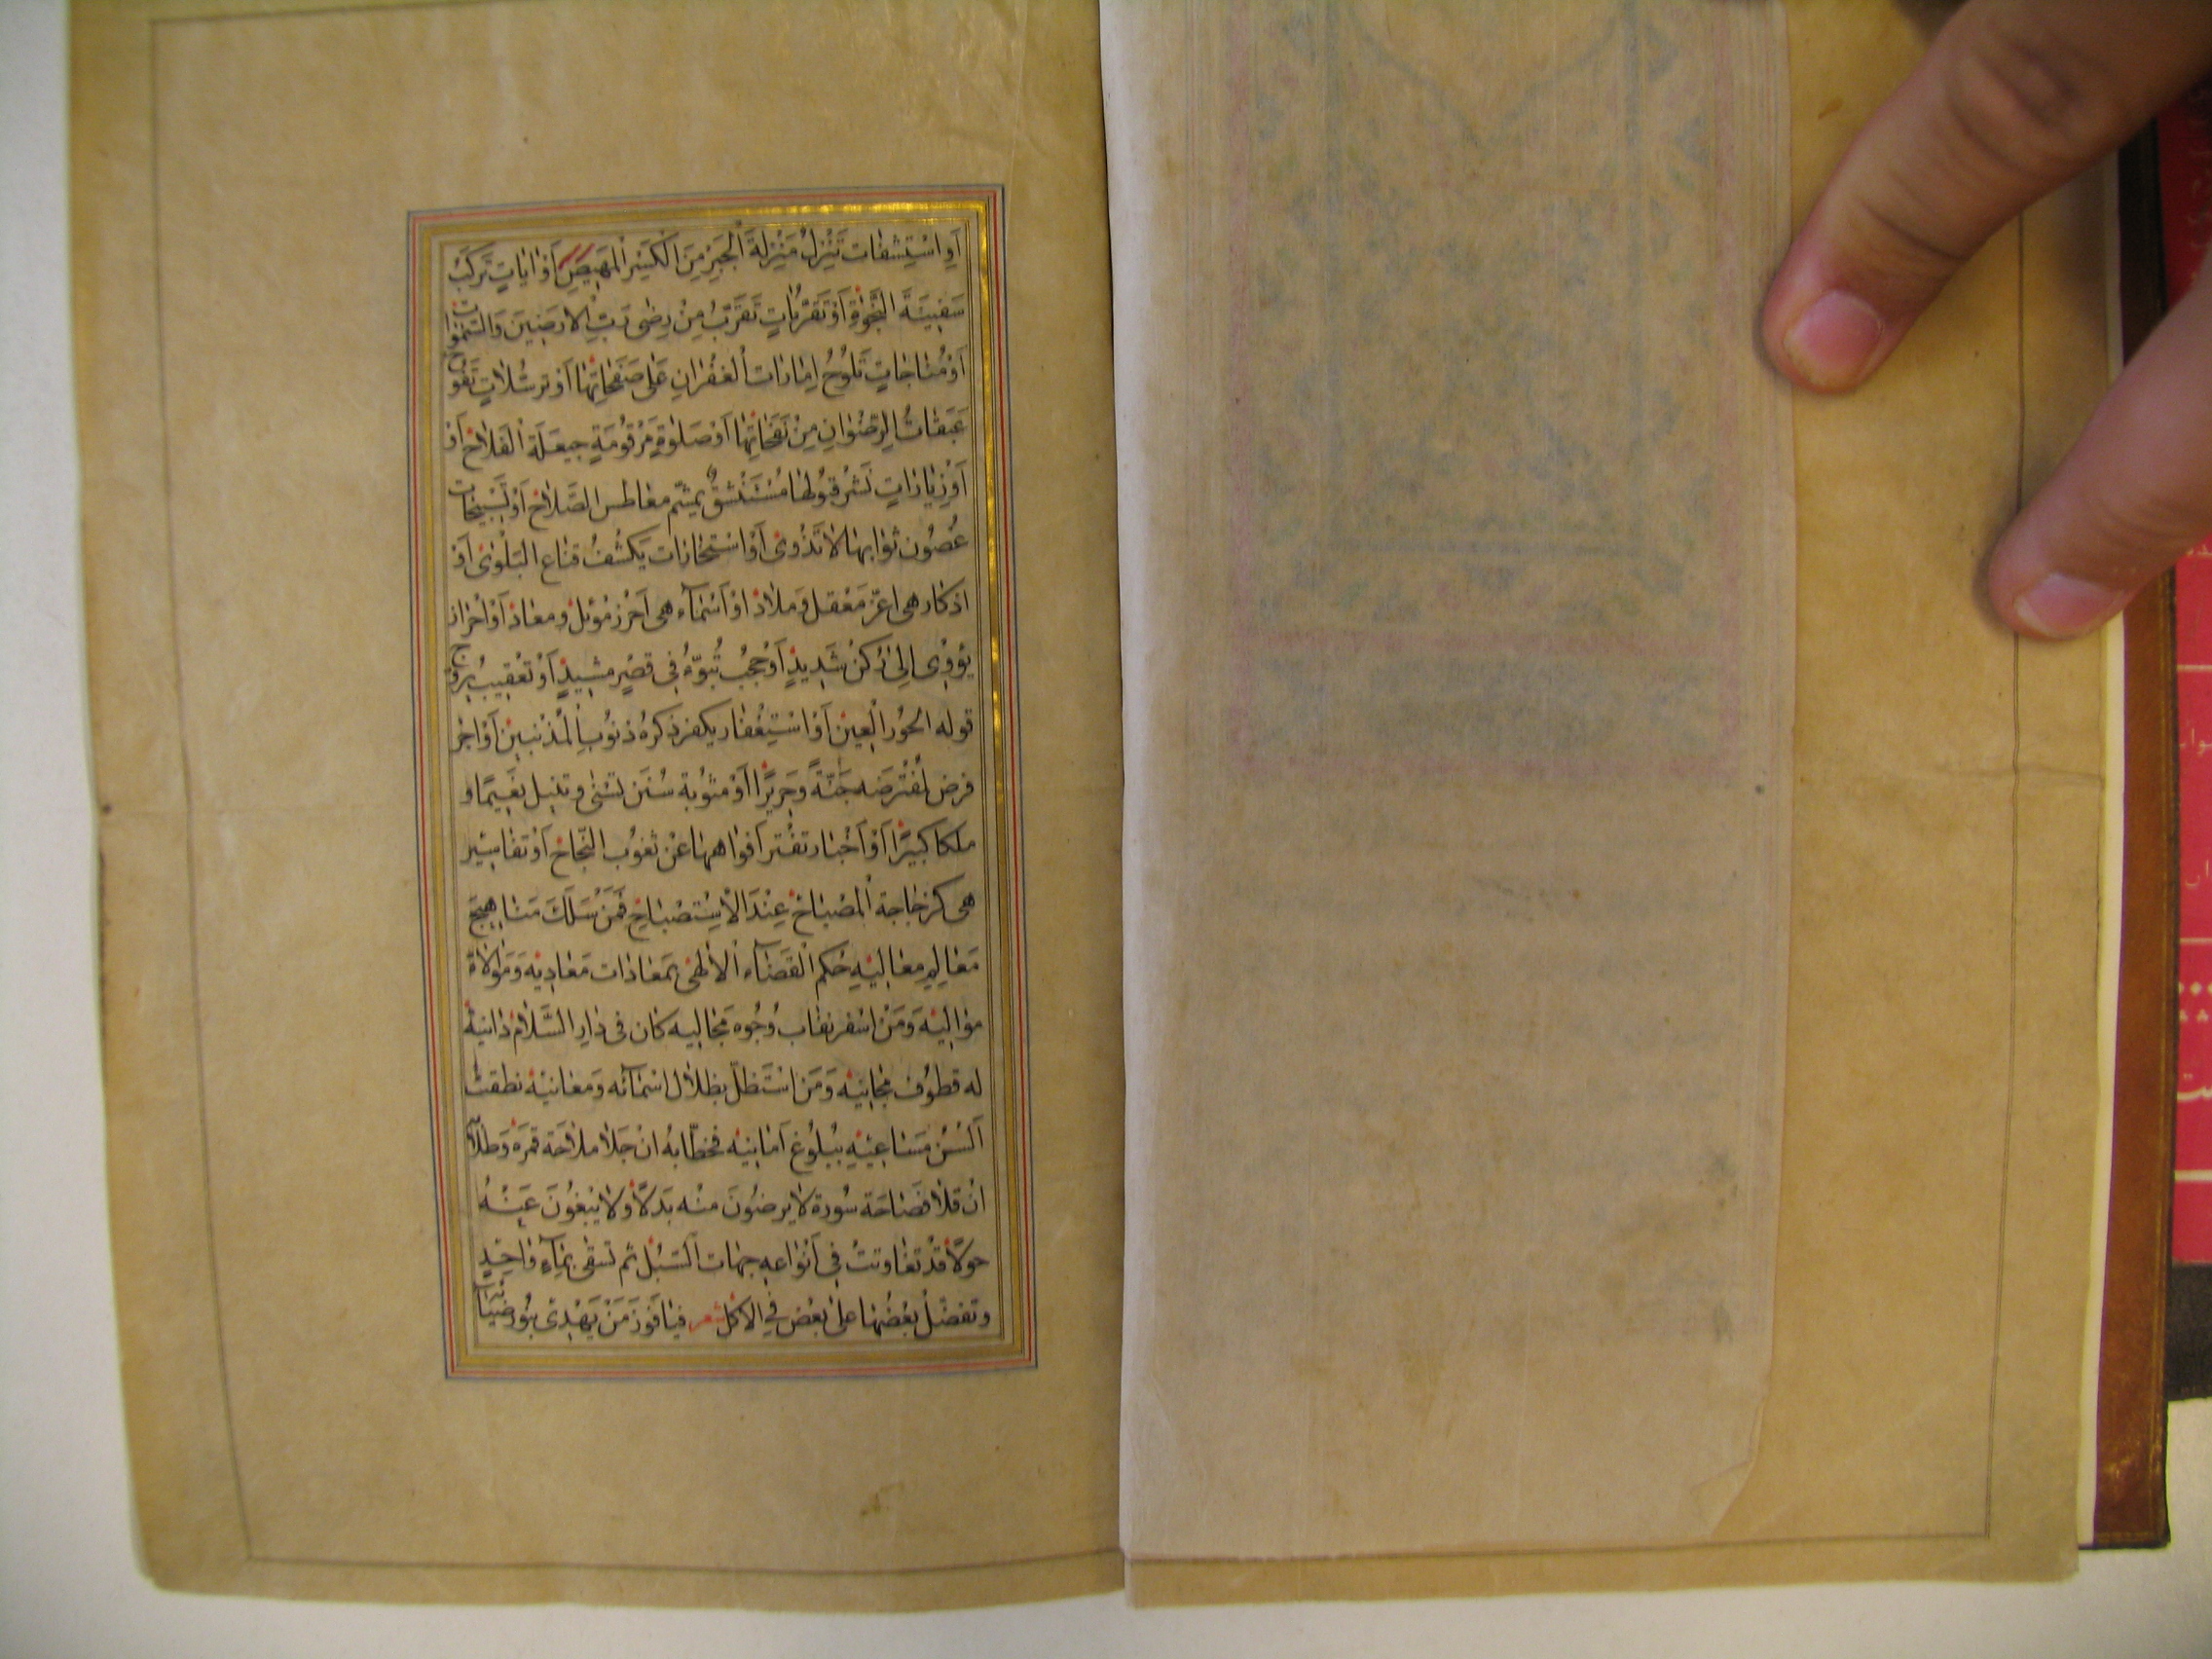 اَوِ اسْتِشفات تَنْزِلُ مَنْزِلَةَ الْجَبْرِ مِنَ الْكَسْرِ الْمَهيضِ اَوْ اياتٍ تَركَبُ
سَفينَةَ النَّجوةِ اَوْ تَقَرُّباتٍ تَقَرَّبُ مِنْ رِضى رَبِّ الارَضينَ وَالسَّمٰوات
اَوْ مُناجاتٍ تَلُوحُ اِمارات الْغفْرانِ عَلى صَفَحاتِها اَو توسُّلاتٍ تَفُوح
عَبَقاتُ الرِّضْوانِ مِنْ نَفَحاتِها اَوْ صَلوةٍ مَرْقُومَةٍ جيعَلَة الْفَلاحْ اَوْ
اَوْ زِياراتٍ نَشْر قبُولها مُسْتَنْشقٌ بمِشَمّ معاطس الصَّلاحْ اَوْ تَسْبيحات
غُصُون ثوابها لا تَذْوى اَوْ اسْتخارات يَكشُفُ قناع البَلْوى اَوْ
اذكار هى اعزّ مَعْقل وَ ملاذْ اوْ اَسْمآء هى اَحْرز مَوْئل و معاذْ اَوْ احْراز
يؤوْى اِلى رُكنٍ شَديدٍ اَوْ حُجُب تُبوّءُ فى قصْرٍ مشيدٍ اَوْ تَعْقيب يُزوّج
قوله الحُور الْعينْ اَوْ اسْتِغْفار يكفر ذكرهُ ذنوُب الْمذْنبينْ اَوْ اجْر
فرض لمُفْتَرضه جَنَّةً وَ حَريرًا اَوْ مثوُبة سُنَن تسْنى و تنيل نَعيمًا و
ملكا كبيرًا اَوْ اَخْبار تفْتر اَفواهها عَنْ ثغوُب النّجاحْ اَوْ تفاسير
هى كزجاجة الْمصْباحْ عِنْدَ الْاِسْتصْباحِ فَمَنْ سَلَكَ مَناهيجَ
مَعالِمِ معاليْهِ حكم القَضآء الْالهى بمَعادات مَعاديْه وَ مَوْالاة
مواليْه وَ مَنْ اسْفر نقاب وُجُوه مَجاليه كان فى دارِ السَّلامْ دانية
له قطوُف مجانيْه وَ مَن اسْتَظلّ بظلال اسْمآئه وَ معانيْهْ نطقتْ
اَلسُنُ مَساعيْهِ ببُلُوغ اَمانيْه فخطّابهُ انْ جَلا ملاحَة قمرَهُ وَ طلّابه
انْ قلا فَصاحَة سُورة لا يرضوُنَ منْه بَدلاً وَ لا يبْغوُنَ عَنْهُ
حوَلاً قدْ تفاوتتْ فى اَنْواعهِ جهات السّبُل ثم تسْقى بمآءٍ واحِدٍ
و تفضّلُ بعْضُها على بَعْض فِى الاكلْ شعر فيا فَوزَ مَنْ يَهْدى بنُور ضيآئه